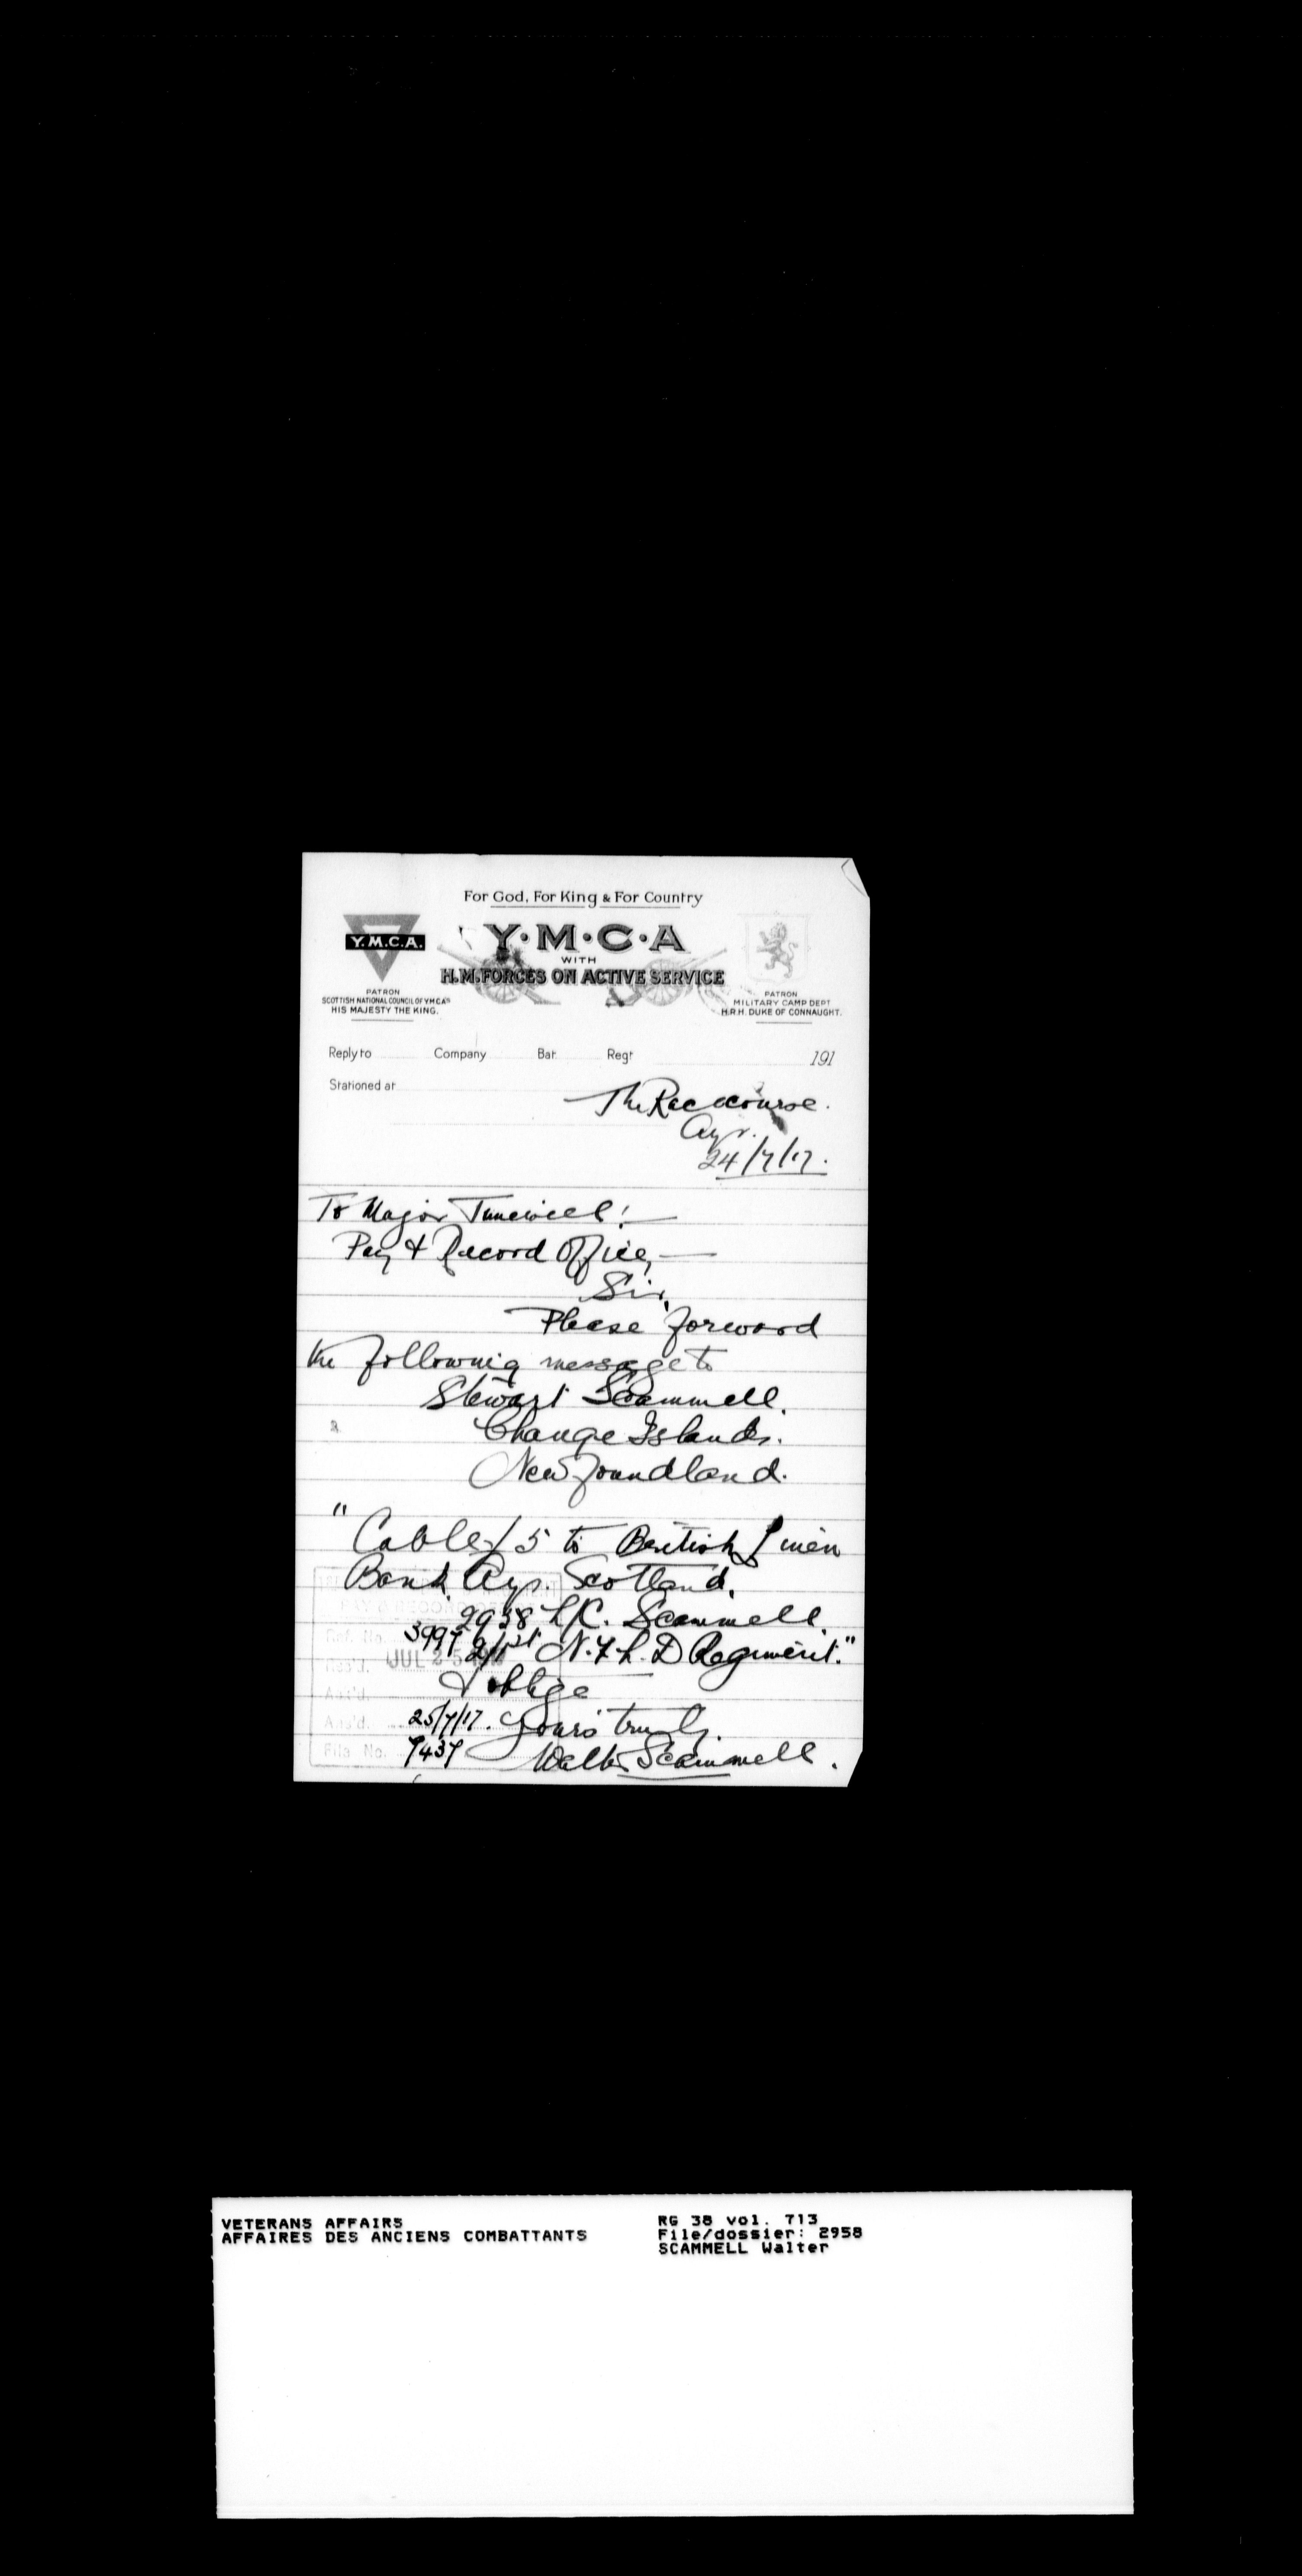 For God, For King & For Country
Y.M.C.A.
Y·M·C·A
WITH
H.M. FORCES ON ACTIVE SERVICE
PATRON
SCOTTISH NATIONAL COUNCIL OF YMCA'S
HIS MAJESTY THE KING.
PATRON
MILITARY CAMP DEPT
H.R.H. DUKE OF CONNAUGHT.
Reply to Company Bat. Regt 191
Stationed at
The Racecourse.
Ayr.
24/7/17.
To Major Timewell!
Pay & Record Office,
Sir,
Please forward
the following message to
Stewart Scammell.
Change Islands.
Newfoundland.
"Cable £5 to British Linen
Bank Ayr. Scotland.
2958 L/C. Scammell.
3997 2/1st N.F.L.D Regiment."
Ref. No.
Rec'd. JUL 25 1917
& oblige
Ack'd.
Ans'd. 25/7/17. Yours truly.
File No. 7437 Walter Scammell.
VETERANS AFFAIRS
AFFAIRES DES ANCIENS COMBATTANTS
RG 38 vol. 713
File/dossier: 2958
SCAMMELL Walter